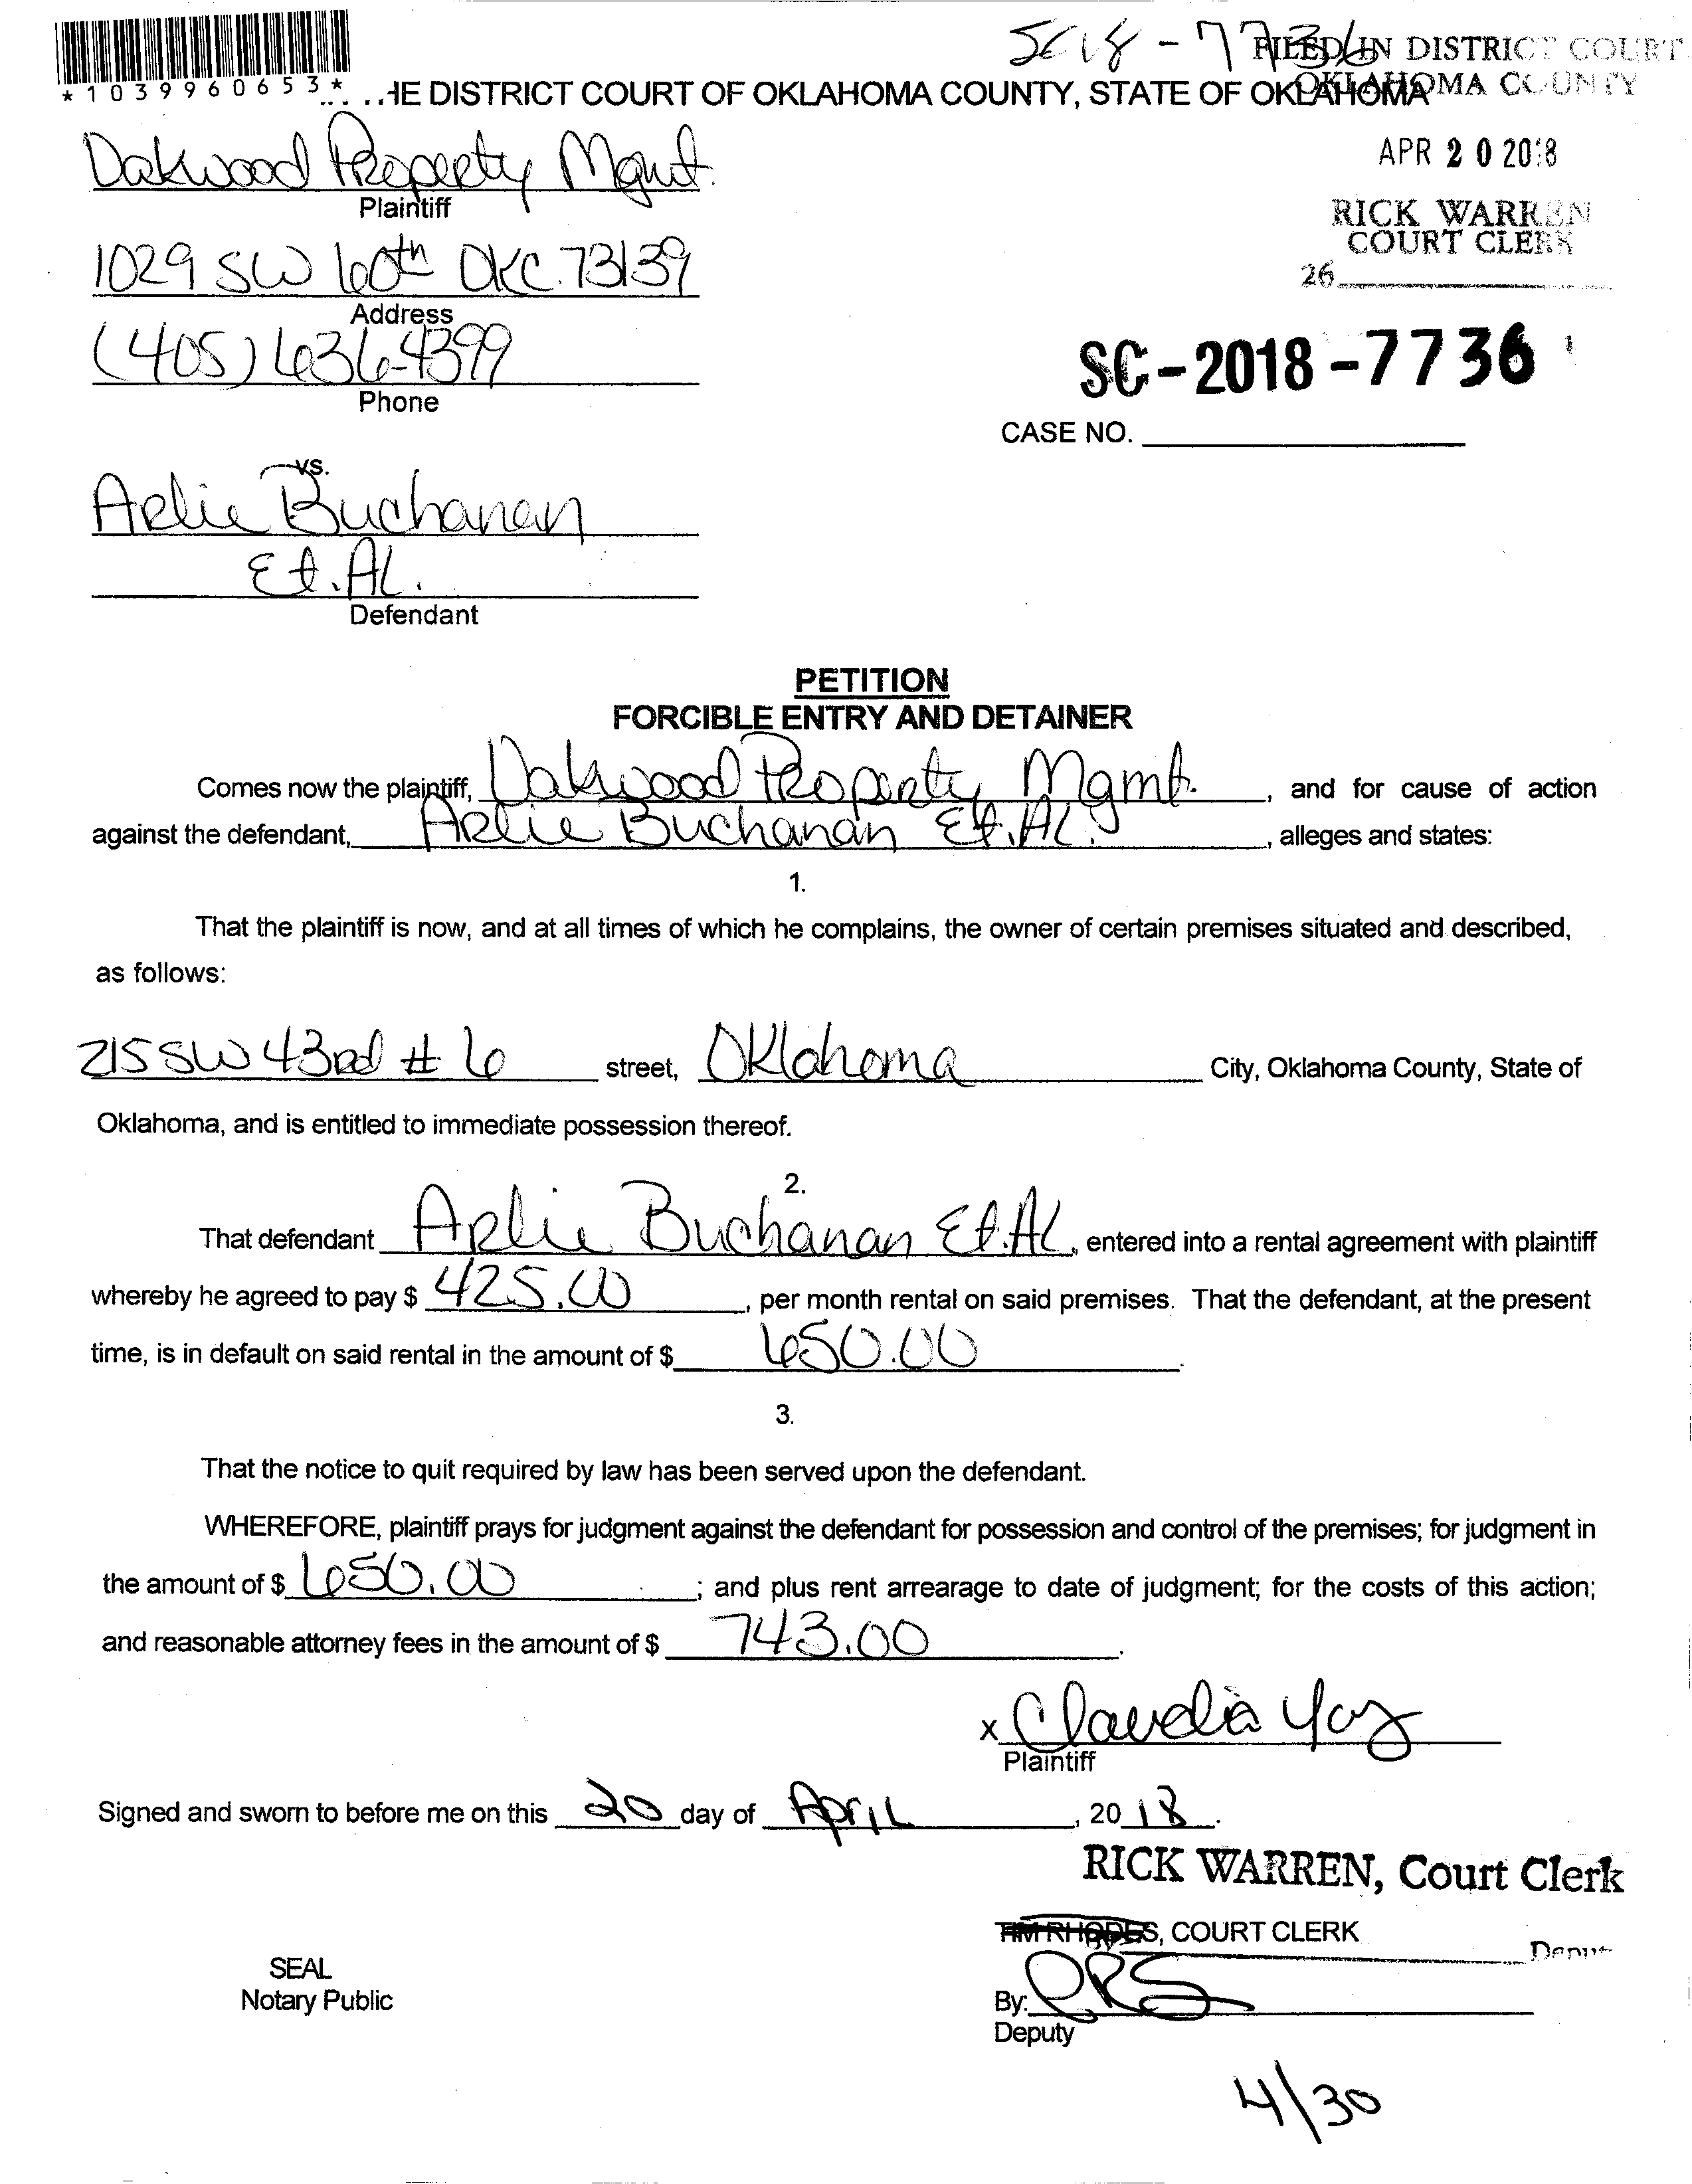 SC18-7736
FILED IN DISTRICT COURT
OKLAHOMA COUNTY
*1039960653*
HE DISTRICT COURT OF OKLAHOMA COUNTY, STATE OF OKLAHOMA
APR 20 2018
RICK WARREN
COURT CLERK
26
Oakwood Property Mgmt.
Plaintiff
1029 SW 60th OKC. 73139
Address
(405) 636-4399
Phone
SC-2018-7736
CASE NO.
vs.
Arlie Buchanan
Et. AL.
Defendant
PETITION
FORCIBLE ENTRY AND DETAINER
Comes now the plaintiff, Oakwood Property Mgmt. , and for cause of action
against the defendant, Arlie Buchanan Et. AL. , alleges and states:
1.
That the plaintiff is now, and at all times of which he complains, the owner of certain premises situated and described,
as follows:
215 SW 43rd # 6 street, Oklahoma City, Oklahoma County, State of
Oklahoma, and is entitled to immediate possession thereof.
2.
That defendant Arlie Buchanan Et. AL , entered into a rental agreement with plaintiff
whereby he agreed to pay $ 425.00 , per month rental on said premises. That the defendant, at the present
time, is in default on said rental in the amount of $ 650.00 .
3.
That the notice to quit required by law has been served upon the defendant.
WHEREFORE, plaintiff prays for judgment against the defendant for possession and control of the premises; for judgment in
the amount of $ 650.00 ; and plus rent arrearage to date of judgment; for the costs of this action;
and reasonable attorney fees in the amount of $ 743.00 .
x Claudia
Plaintiff
Signed and sworn to before me on this 20 day of April , 20 18 .
RICK WARREN, Court Clerk
TIM RHODES, COURT CLERK
SEAL
Notary Public
By:
Deputy
4/30